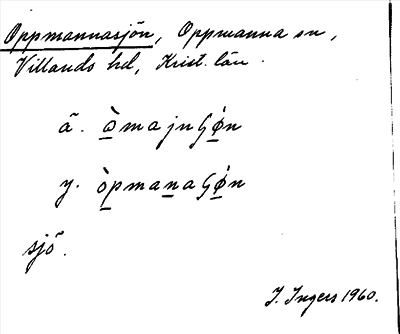 Oppmannasjön, Oppmanna sn,
Villands hd, Krist. län.
ä. òmajnʃǿn
y. òpmanaʃǿn
sjö.
I. Ingers 1960.